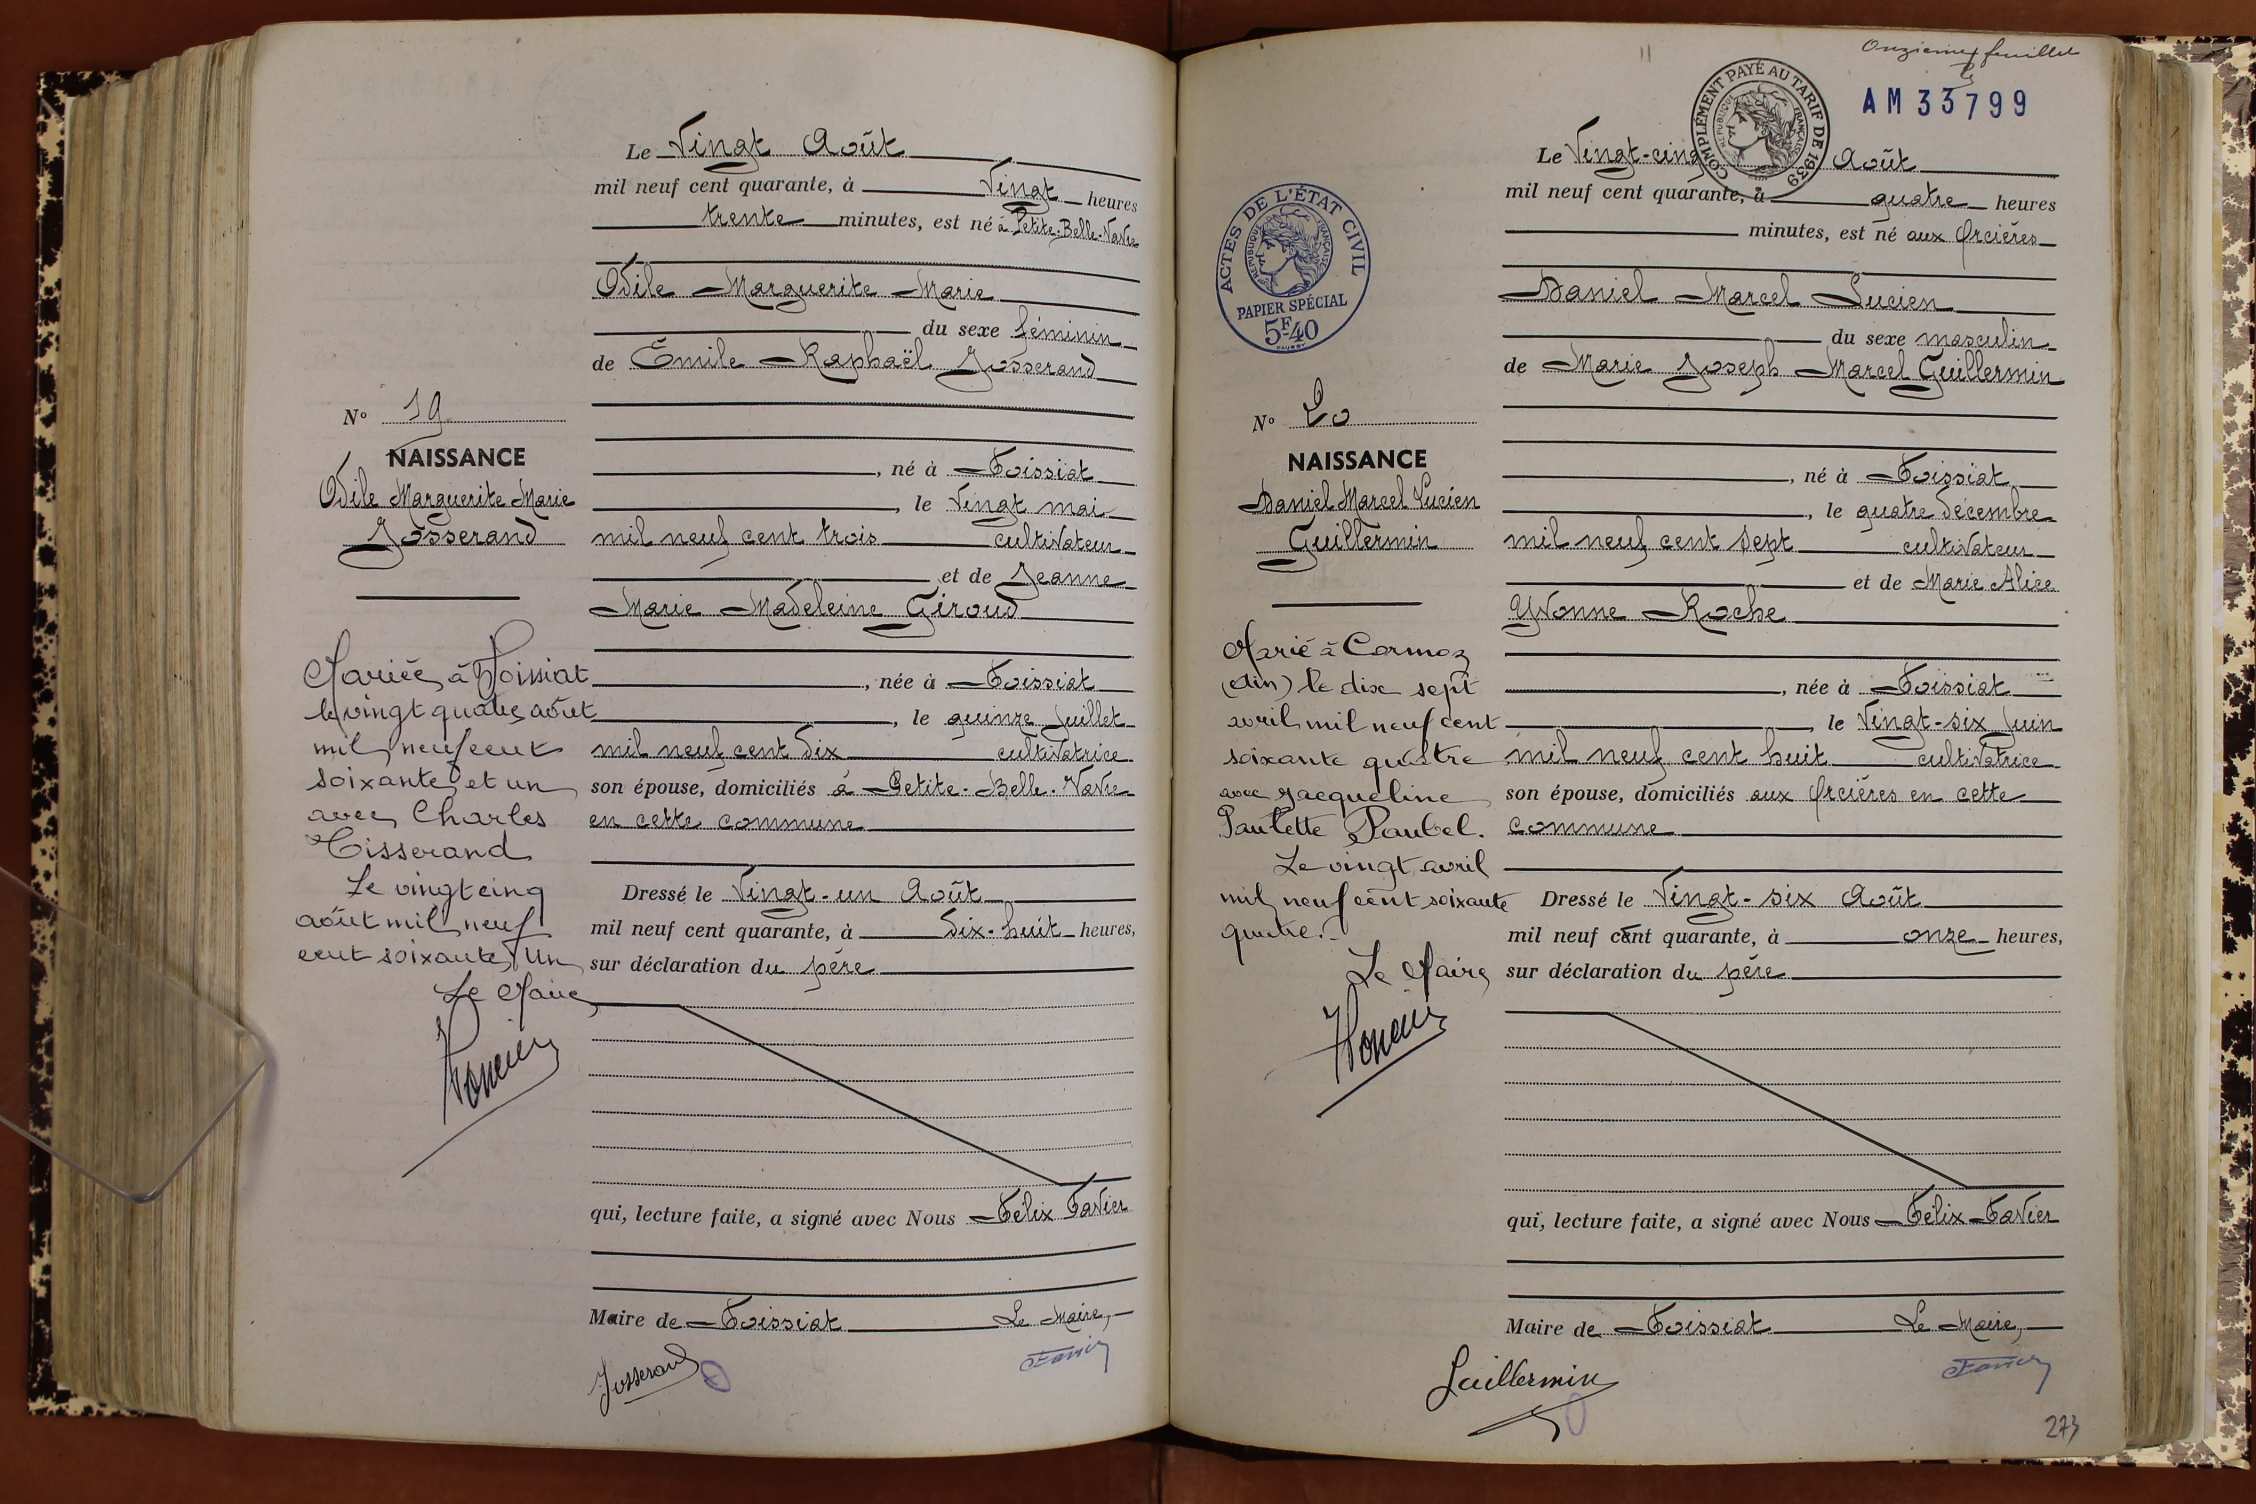 Le Vingt Août
mil neuf cent quarante, à Vingt heures
trente minutes, est né à Petite-Belle-Vavre
Odile Marguerite Marie
du sexe féminin
de Émile Raphaël Josserand
N° 19
NAISSANCE
Odile Marguerite Marie
Josserand
, né à Foissiat
, le Vingt mai
mil neuf cent trois cultivateur
et de Jeanne
Marie Madeleine Giroud
, née à Foissiat
, le quinze Juillet
mil neuf cent dix cultivatrice
son épouse, domiciliés à Petite-Belle-Vavre
en cette commune
Dressé le Vingt-un Août
mil neuf cent quarante, à dix-huit heures,
sur déclaration du père
qui, lecture faite, a signé avec Nous Félix Favier
Maire de Foissiat Le Maire,
Josserand Favier
Mariée à Foissiat
le vingt quatre août
mil neuf cent
soixante et un
avec Charles
Tisserand
Le vingt cinq
août mil neuf
cent soixante un
Le Maire
11
Onzième feuillet
AM 33799
COMPLÉMENT PAYÉ AU TARIF DE 1939
RÉPUBLIQUE FRANÇAISE
Le Vingt-cinq Août
mil neuf cent quarante, à quatre heures
minutes, est né aux Orcières
ACTES DE L'ÉTAT CIVIL
RÉPUBLIQUE FRANÇAISE
PAPIER SPÉCIAL
5F40
Daniel Marcel Lucien
du sexe masculin
de Marie Joseph Marcel Guillermin
N° 20
NAISSANCE
Daniel Marcel Lucien
Guillermin
, né à Foissiat
, le quatre décembre
mil neuf cent sept cultivateur
et de Marie Alice
Yvonne Roche
, née à Foissiat
, le Vingt-six Juin
mil neuf cent huit cultivatrice
son épouse, domiciliés aux Orcières en cette
commune
Dressé le Vingt-six Août
mil neuf cent quarante, à onze heures,
sur déclaration du père
qui, lecture faite, a signé avec Nous Félix Favier
Maire de Foissiat Le Maire,
Guillermin Favier
Marié à Cormoz
(Ain) le dix sept
avril mil neuf cent
soixante quatre
avec Jacqueline
Paulette Paubel.
Le vingt avril
mil neuf cent soixante
quatre.
Le Maire
273